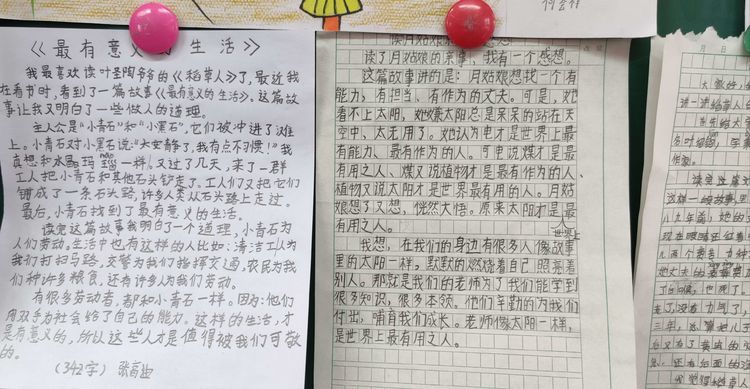 何会祥
《最有意义的生活》
我最喜欢读叶圣陶爷爷的《稻草人》了，最近我
在看书时，看到了一篇故事《最有意义的生活》。这篇故
事让我又明白了一些做人的道理。
主人公是"小青石"和"小黑石"，它们被冲进了滩
上。小青石对小黑石说："太安静了，我有点不习惯！"我
真想和水晶玛瑙一样。又过了几天，来了一群
工人把小青石和其他石头铲走了。工人们又把它们
铺成了一条石头路，许多人类从石头路上走过。
最后，小青石找到了最有意义的生活。
读完这篇故事我明白了一个道理，小青石为
人们劳动。生活中也有这样的人比如：清洁工人为
我们打扫马路，交警为我们指挥交通，农民为我
们种许多粮食，还有许多人为我们劳动。
有很多劳动者，都和小青石一样。因为：他们
用双手为社会给了自己的能力。这样的生活，才
是有意义的，所以这些人才是值得被我们可敬
的。
（342字）
读月姑娘的亲事
读了月姑娘的亲事，我有一个感想。
这篇故事讲的是：月姑娘想找一个有
能力，有担当、有作为的丈夫。可是，她
看不上太阳，她嫌太阳总是呆呆的站在天
空中、太无用了。她认为电才是世界上最
有能力、最有作为的人。可电说煤才是最
有用之人、煤又说植物才是最有作为的人、
植物又说太阳才是世界最有用的人。月姑
娘想了又想，恍然大悟。原来太阳才是最
有用之人。
世界上
我想，在我们的身边有很多人像故事
里的太阳一样，默默的燃烧着自己，照亮着
别人。那就是我们的老师为了我们能学到
很多知识，很多本领。他们辛勤的为我们
付出，哺育我们成长。老师像太阳一样，
是世界上最有用之人。
月 日
读完这篇文
这样一段故事里
八九年前，她的
现在眼睛还红着
三年，